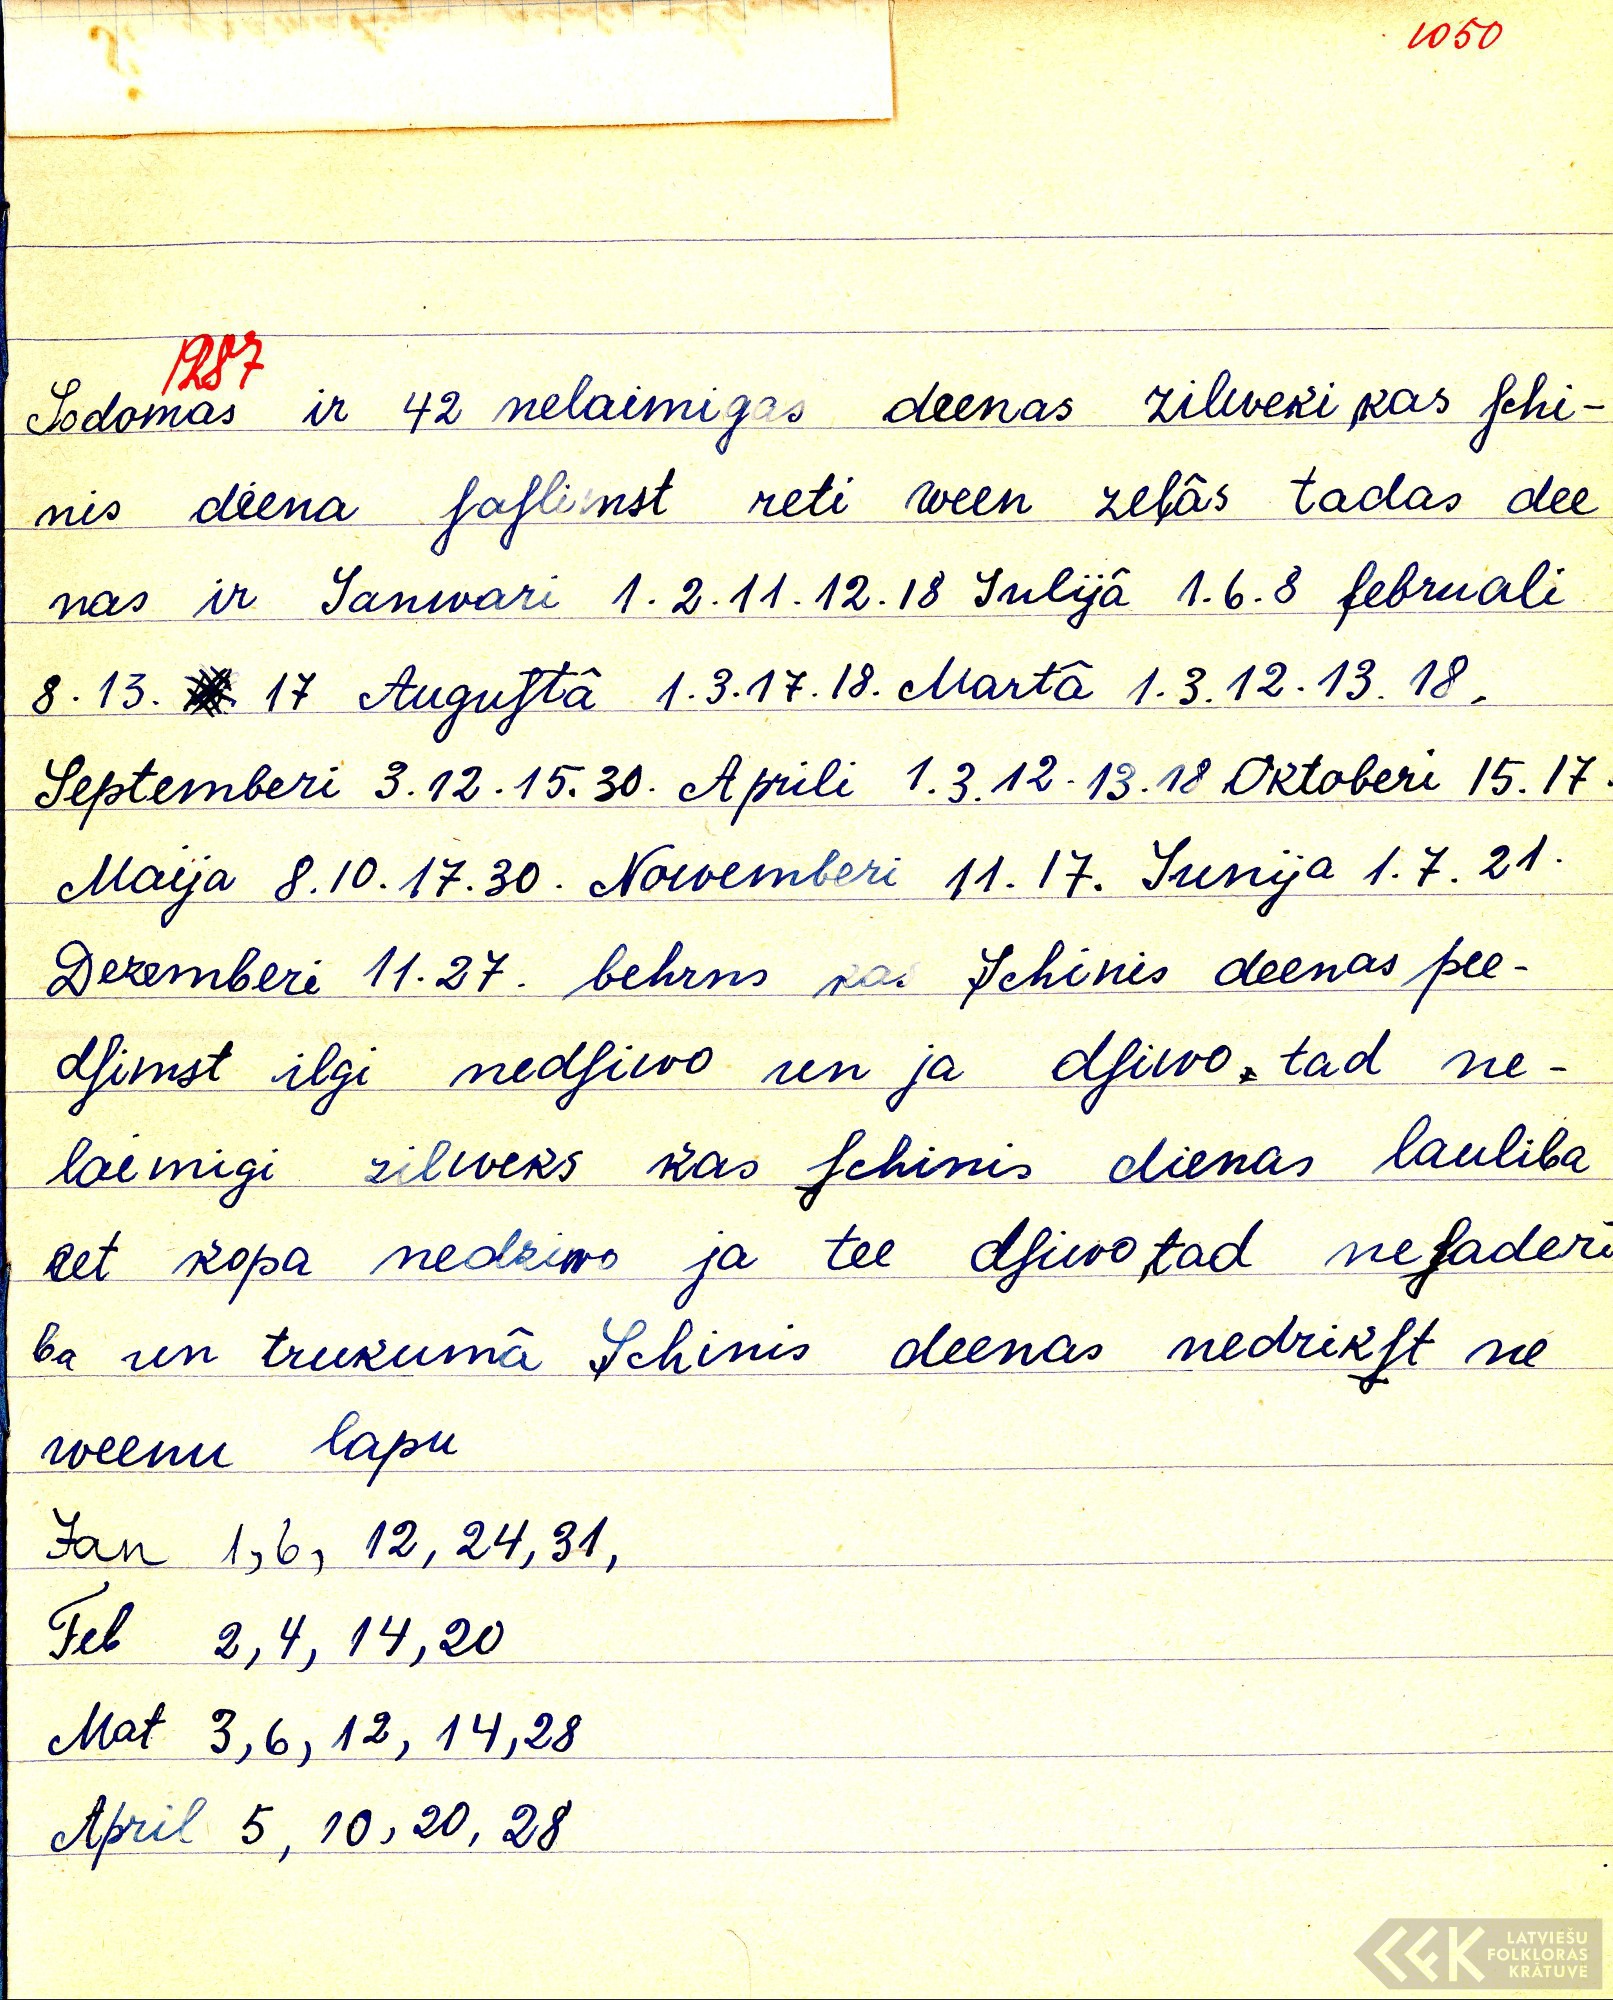 1050
1287
Sodomas ir 42 nelaimigas deenas zilweki, kas ſchi-
nis deena ſaſlimst reti ween zelâs tadas dee
nas ir Janwari 1. 2. 11. 12. 18 Julijâ 1. 6. 8 februali
8. 13. 17 Auguſtâ 1. 3. 17. 18. Martâ 1. 3. 12. 13. 18.
Septemberi 3. 12. 15. 30. Aprili 1. 3. 12. 13. 18 Oktoberi 15. 17.
Maija 8. 10. 17. 30. Nowemberi 11. 17. Junija 1. 7. 21.
Dezemberi 11. 27. behrns kas Schinis deenas pee-
dſimst ilgi nedſiwo un ja dſiwo, tad ne-
laimigi zilweks kas ſchinis dienas lauliba
eet kopa nedziwo ja tee dſiwo, tad neſaderi
ba un trukumâ Schinis deenas nedrikſt ne
weenu lapu
Jan 1, 6, 12, 24, 31,
Feb 2, 4, 14, 20
Mat 3, 6, 12, 14, 28
April 5, 10, 20, 28
LATVIEŠU
FOLKLORAS
KRĀTUVE